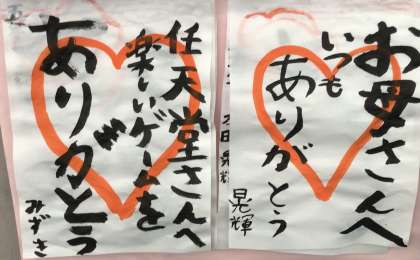 お母さんへ
いつも
ありがとう
晃輝
任天堂さんへ
楽しいゲームを
ありがとう
みずき